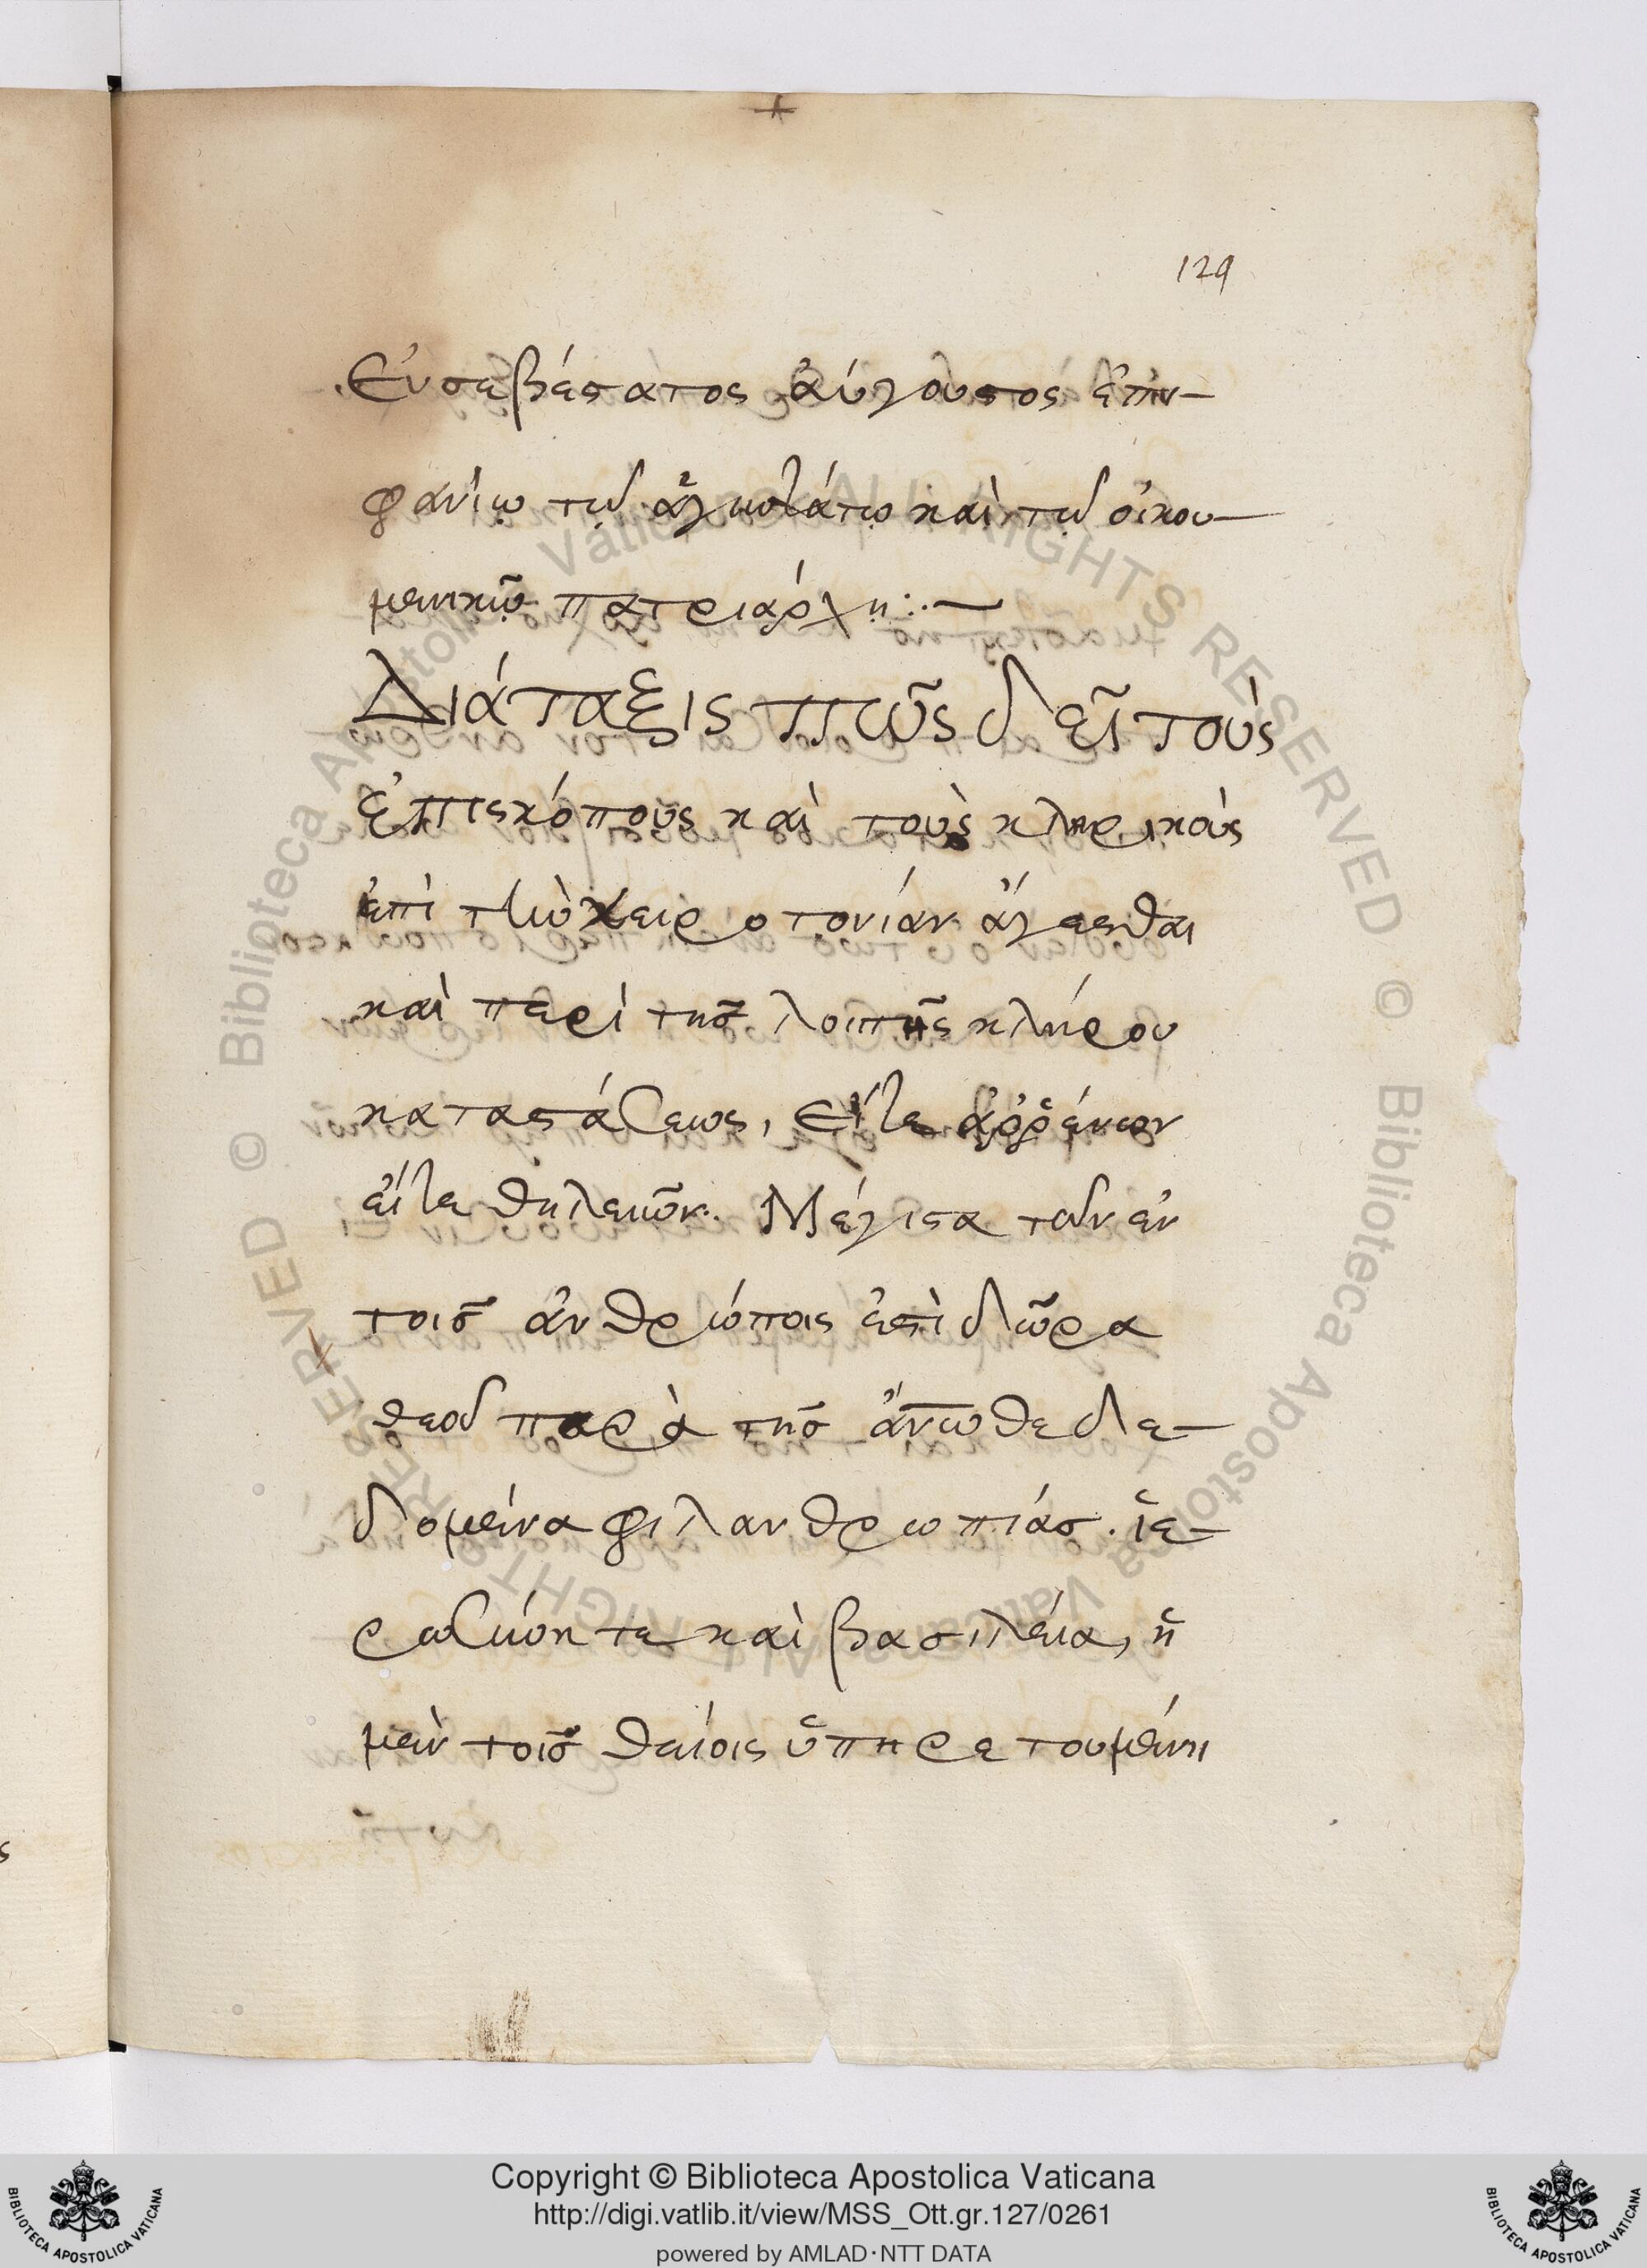 129
Εὐσεβέστατος ἀύγουστος ἐπι-
φανίῳ τῷ ἁγιωτάτῳ καὶ τῷ οἰκου-
μενικῷ πατριάρχῃ:·—
Διάταξις πῶς δεῖ τοὺς
ἐπισκόπους καὶ τοὺς κληρικοὺς
ἐπὶ τὴν χειροτονίαν ἄγεσθαι
καὶ περὶ τῆς λοιπῆς κλήρου
καταστάσεως, εἴτε ἀῤῥένων
εἴτε θηλειῶν. Μέγιστα τῶν ἐν
τοῖς ἀνθρώποις ἐστὶ δῶρα
θεοῦ παρὰ τῆς ἄνωθε δε-
δομένα φιλανθρωπίας. ἱε-
ρωσύνη τε καὶ βασιλεία, ἡ
μὲν τοῖς θείοις ὑπηρετουμένη
Copyright © Biblioteca Apostolica Vaticana
http://digi.vatlib.it/view/MSS_Ott.gr.127/0261
powered by AMLAD·NTT DATA
BIBLIOTECA APOSTOLICA VATICANA
BIBLIOTECA APOSTOLICA VATICANA